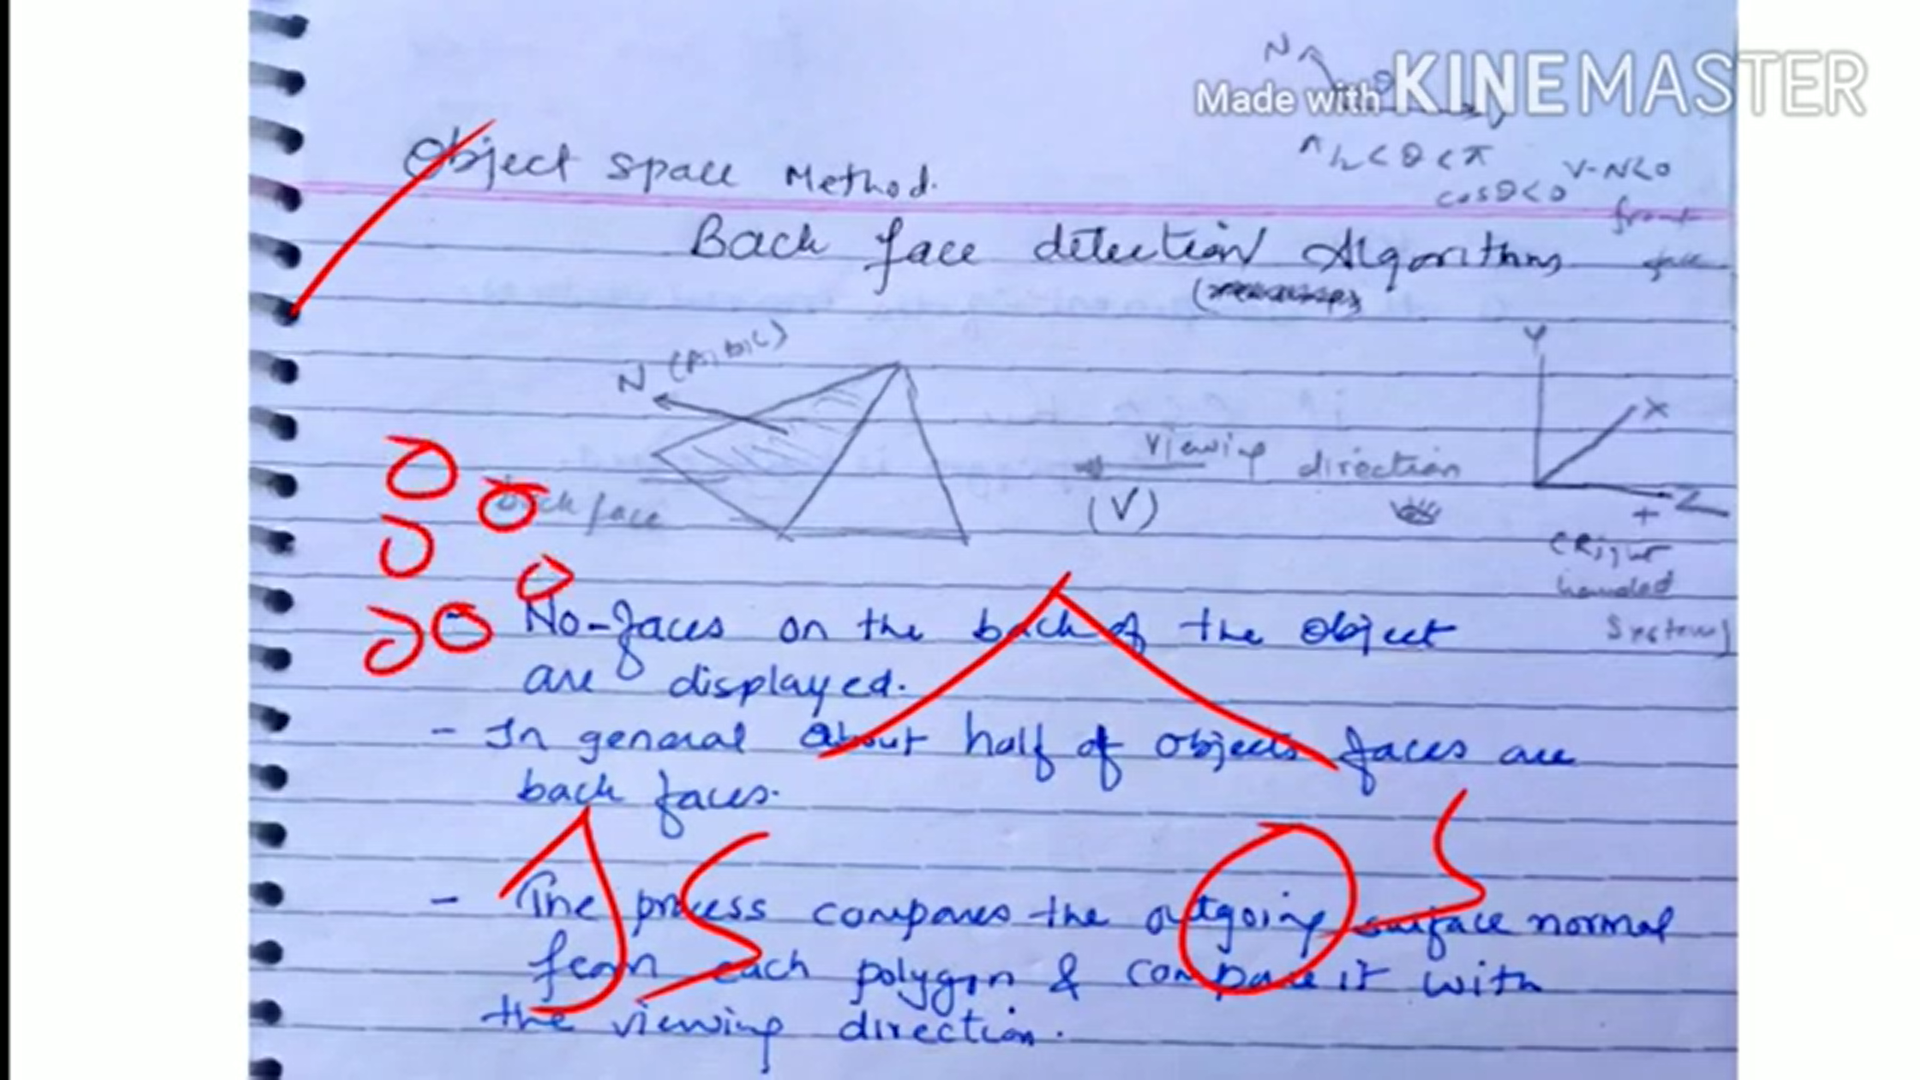 N
θ
Made with KINEMASTER
π/2 < θ < π
V-N<0
cosθ<0
front
face
Object space Method.
Back face detection Algorithms
N (A,B,C)
Y
X
Z
+
viewing direction
(V)
back face
(Right
handed
System)
No-faces on the back of the object
are displayed.
- In general about half of objects faces are
back faces.
- The process compares the outgoing surface normal
from each polygon & compare it with
the viewing direction.